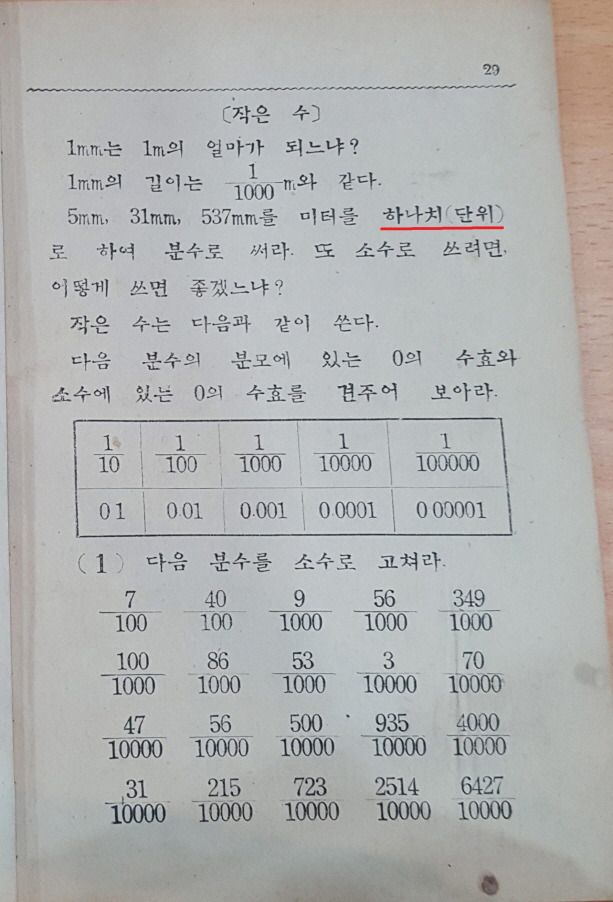 29
〔작은 수〕
1mm는 1m의 얼마가 되느냐?
1mm의 길이는 1/1000 m와 같다.
5mm, 31mm, 537mm를 미터를 하나치(단위)
로 하여 분수로 써라. 또 소수로 쓰려면,
어떻게 쓰면 좋겠느냐?
작은 수는 다음과 같이 쓴다.
다음 분수의 분모에 있는 0의 수효와
소수에 있는 0의 수효를 견주어 보아라.
1/10 1/100 1/1000 1/10000 1/100000
0.1 0.01 0.001 0.0001 0.00001
(1) 다음 분수를 소수로 고쳐라.
7/100 40/100 9/1000 56/1000 349/1000
100/1000 86/1000 53/1000 3/10000 70/10000
47/10000 56/10000 500/10000 935/10000 4000/10000
31/10000 215/10000 723/10000 2514/10000 6427/10000